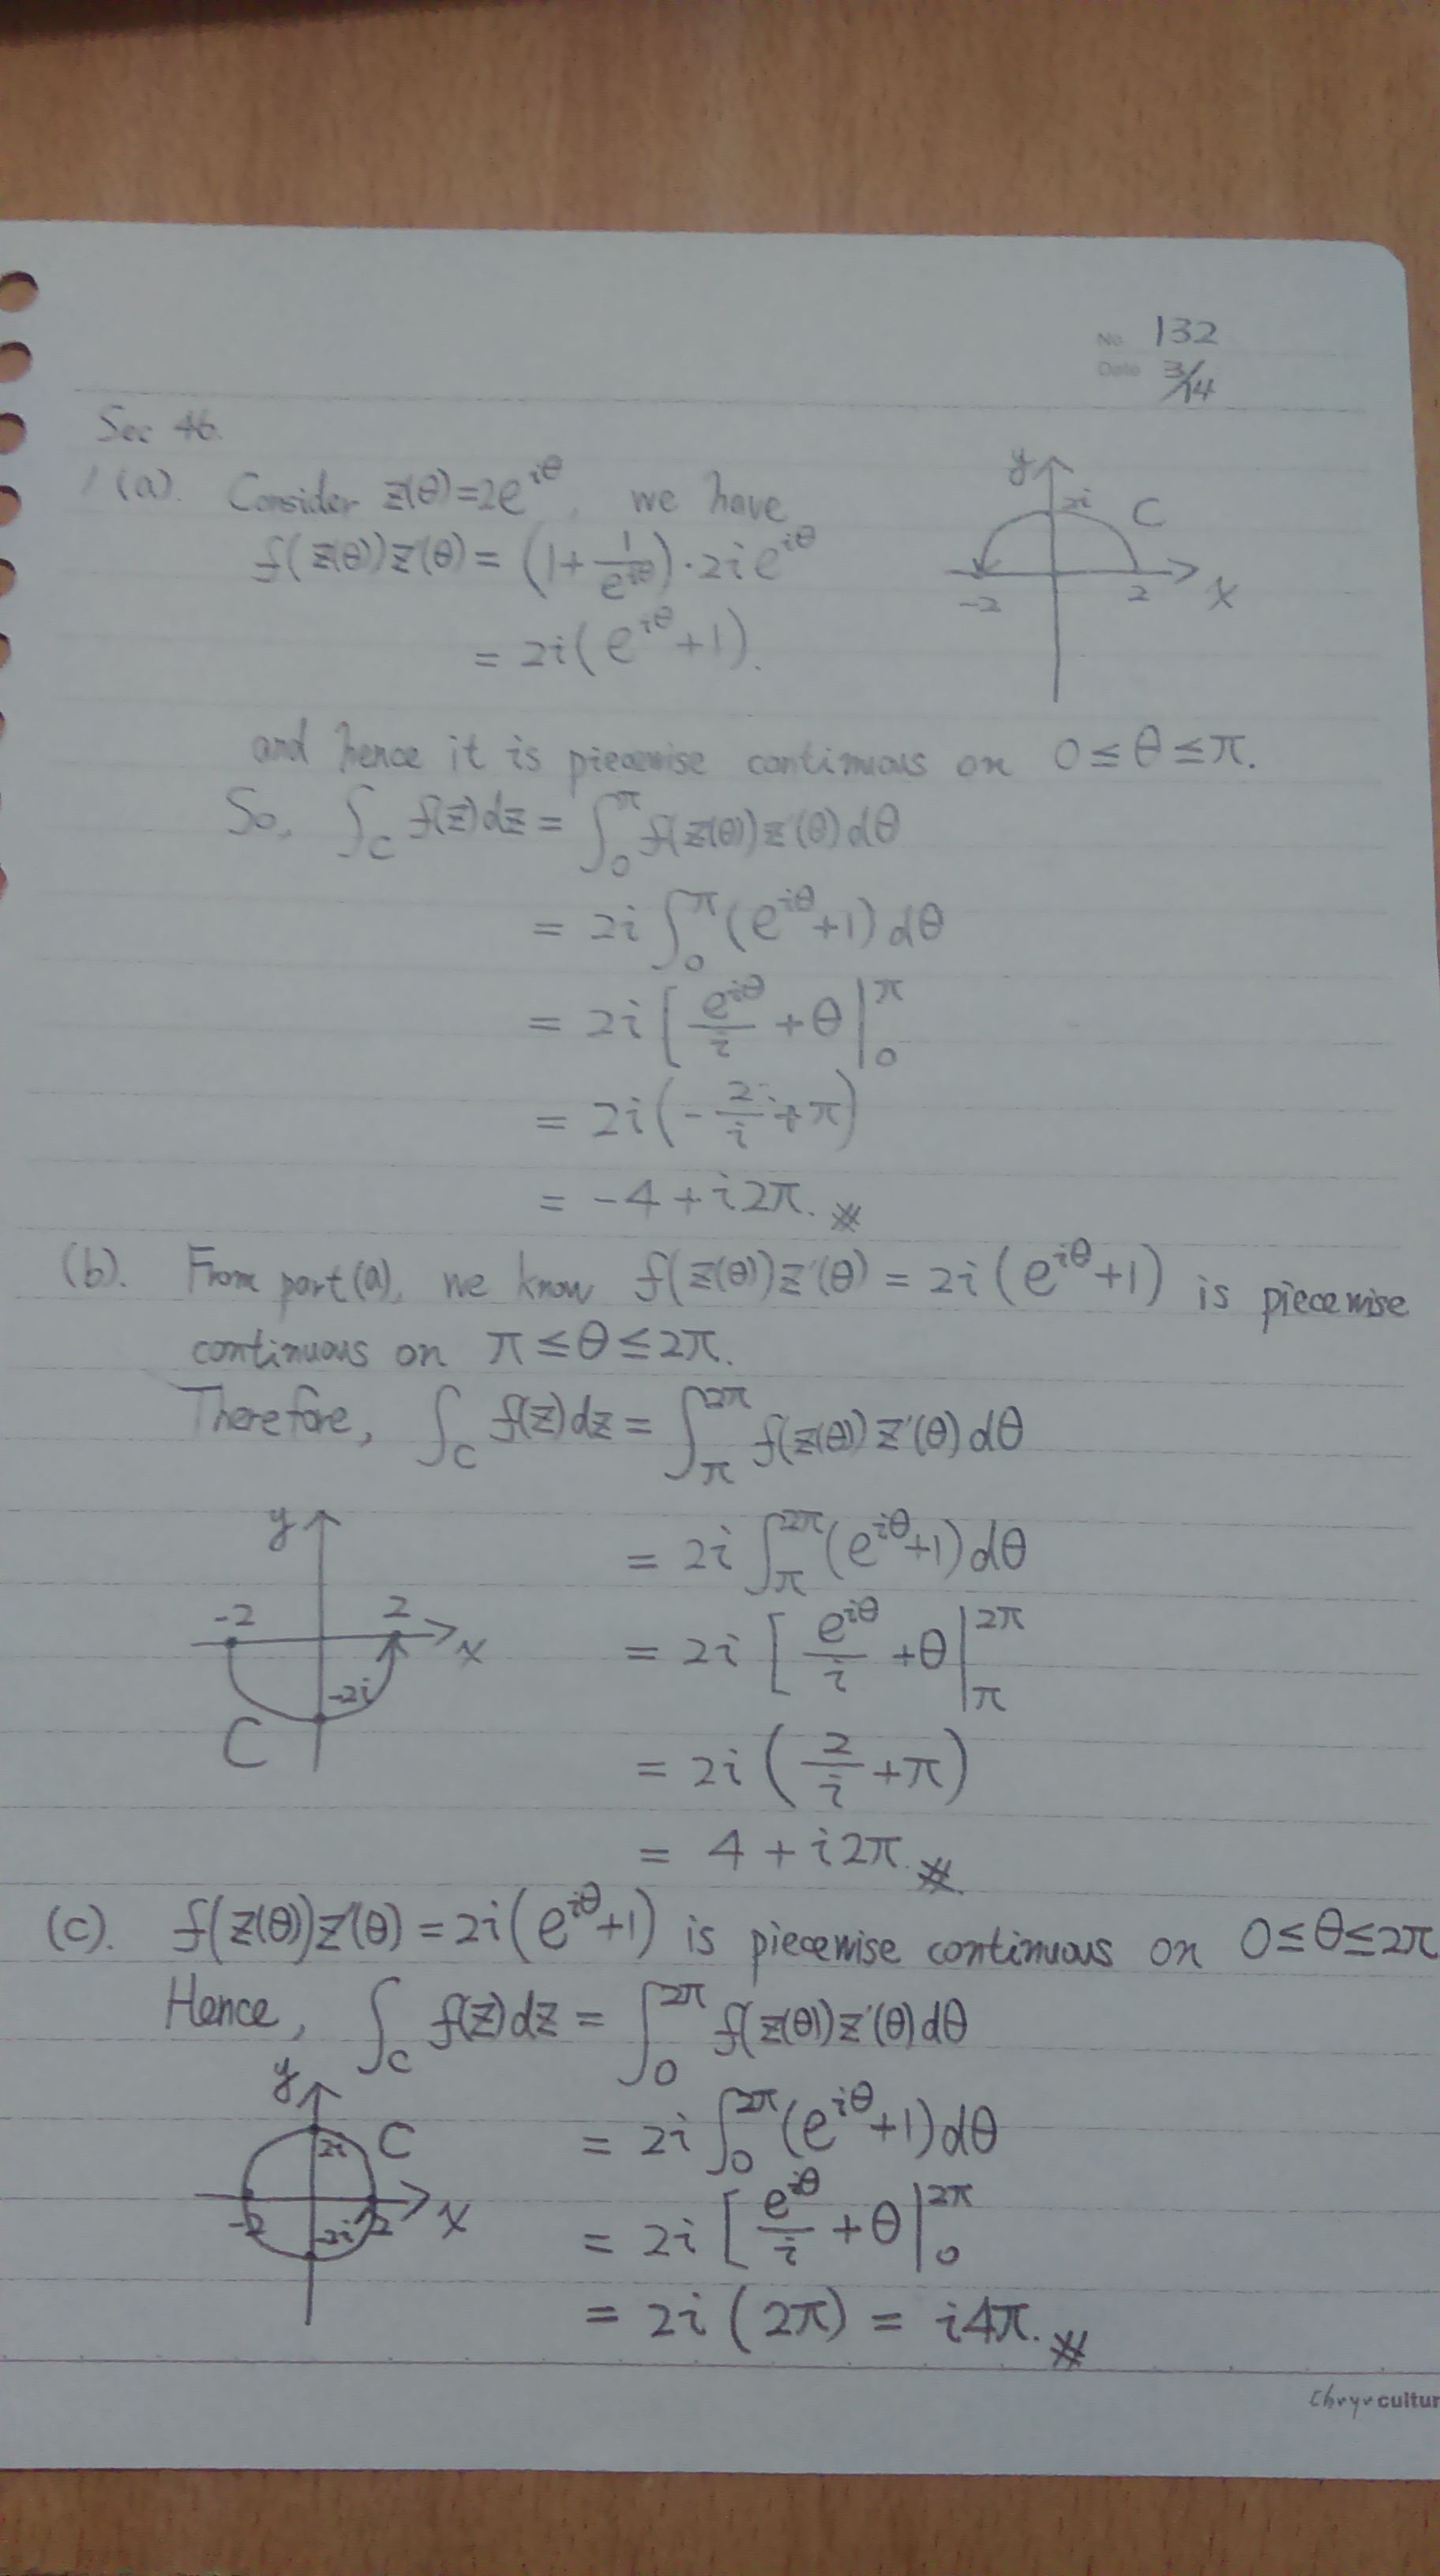 No. 132
Date 3/14
Sec 46.
1(a). Consider z(θ)=2e^{iθ}, we have
y
2i
C
-2
2
x
f(z(θ))z'(θ) = (1+1/e^{iθ})·2ie^{iθ}
= 2i(e^{iθ}+1).
and hence it is piecewise continuous on 0≤θ≤π.
So, ∫_C f(z)dz = ∫_0^π f(z(θ))z'(θ)dθ
= 2i ∫_0^π (e^{iθ}+1)dθ
= 2i [e^{iθ}/i +θ|_0^π
= 2i(-2/i+π)
= -4+i2π.
(b). From part(a), we know f(z(θ))z'(θ) = 2i(e^{iθ}+1) is piecewise
continuous on π≤θ≤2π.
Therefore, ∫_C f(z)dz = ∫_π^{2π} f(z(θ))z'(θ)dθ
y
-2
2
x
-2i
C
= 2i ∫_π^{2π} (e^{iθ}+1)dθ
= 2i [e^{iθ}/i +θ|_π^{2π}
= 2i (2/i+π)
= 4+i2π.
(c). f(z(θ))z'(θ) = 2i(e^{iθ}+1) is piecewise continuous on 0≤θ≤2π
Hence, ∫_C f(z)dz = ∫_0^{2π} f(z(θ))z'(θ)dθ
y
2i
C
-2
-2i
2
x
= 2i ∫_0^{2π} (e^{iθ}+1)dθ
= 2i [e^{iθ}/i +θ|_0^{2π}
= 2i (2π) = i4π.